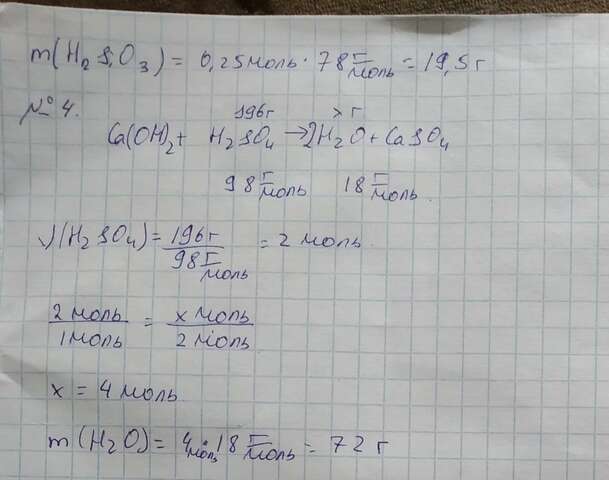 m(H₂SiO₃) = 0,25 моль · 78 г/моль = 19,5 г
№ 4.
196г x г
Ca(OH)₂ + H₂SO₄ → 2H₂O + CaSO₄
98 г/моль 18 г/моль
ν(H₂SO₄) = 196г / 98 г/моль = 2 моль
2 моль / 1 моль = x моль / 2 моль
x = 4 моль
m(H₂O) = 4 моль · 18 г/моль = 72 г